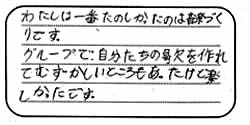 わたしは一番たのしかったのは音楽づく
りです。
グループで、自分たちの音楽を作れ
てむずかしいところもあったけど楽
しかったです。